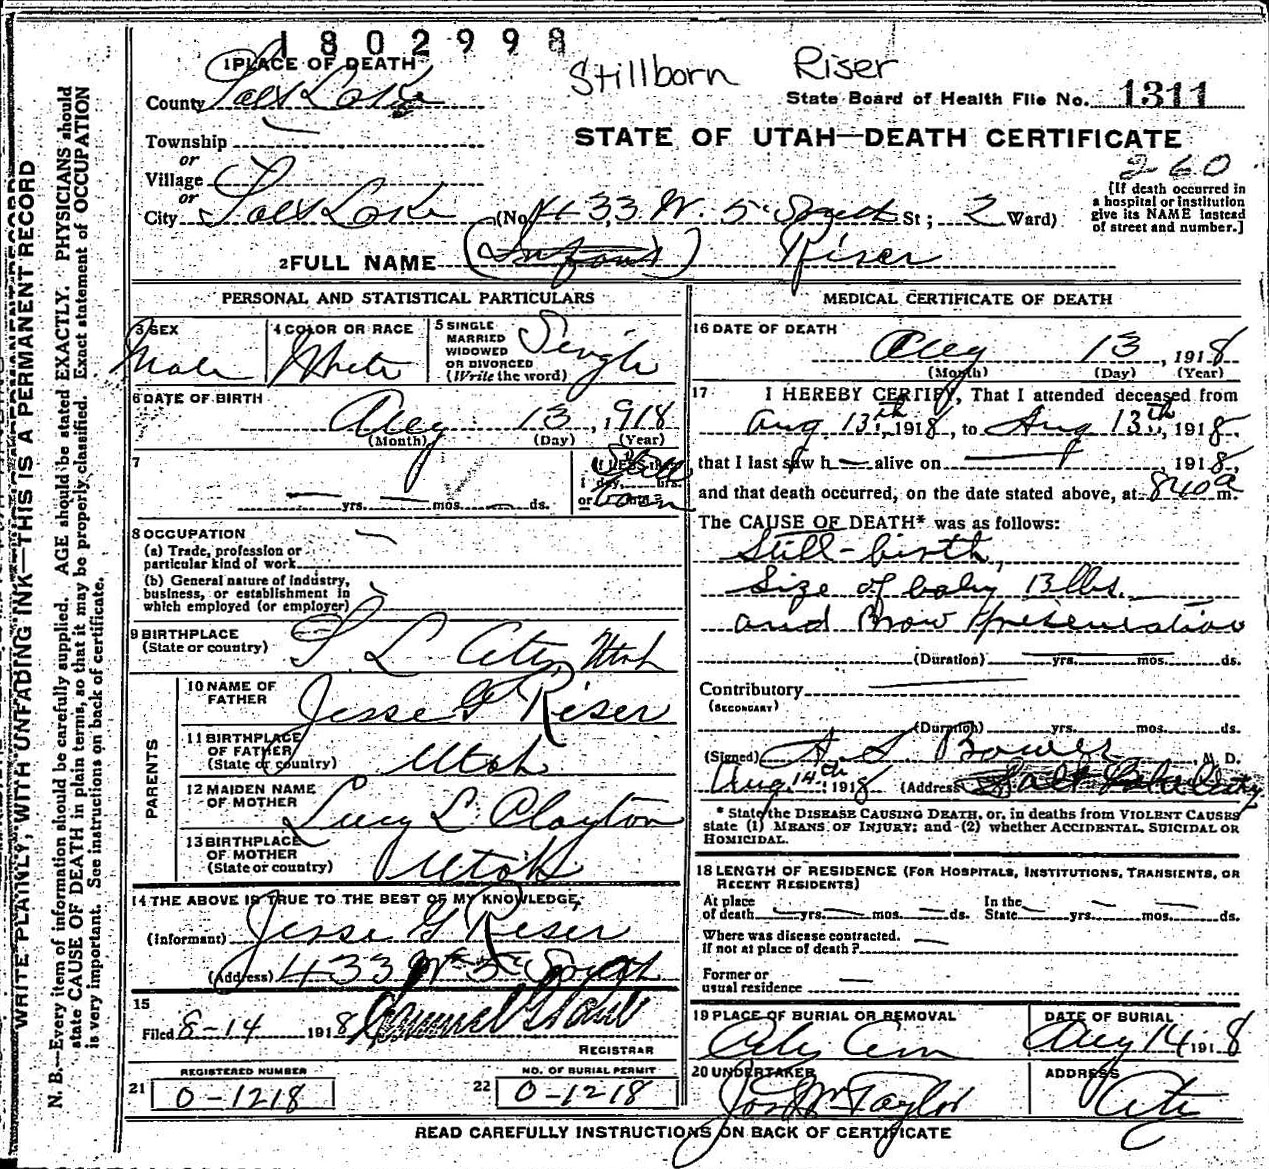 1802998
Stillborn Riser
1 PLACE OF DEATH
County Salt Lake
State Board of Health File No. 1311
Township
STATE OF UTAH—DEATH CERTIFICATE
or
Village
260
or
City Salt Lake (No. 433 W. 5th South St; 2 Ward)
[If death occurred in
a hospital or institution
give its NAME instead
of street and number.]
2 FULL NAME (Infant) Riser
PERSONAL AND STATISTICAL PARTICULARS
3 SEX
Male
4 COLOR OR RACE
White
5 SINGLE
MARRIED
WIDOWED
OR DIVORCED
(Write the word)
Single
6 DATE OF BIRTH
Aug 13, 1918
(Month) (Day) (Year)
7
yrs. mos. ds.
If LESS than
1 day, hrs.
or min.
Still
born
8 OCCUPATION
(a) Trade, profession or
particular kind of work
(b) General nature of industry,
business, or establishment in
which employed (or employer)
9 BIRTHPLACE
(State or country)
S L City, Utah
PARENTS
10 NAME OF
FATHER
Jesse G Riser
11 BIRTHPLACE
OF FATHER
(State or country)
Utah
12 MAIDEN NAME
OF MOTHER
Lucy L Clayton
13 BIRTHPLACE
OF MOTHER
(State or country)
Utah
14 THE ABOVE IS TRUE TO THE BEST OF MY KNOWLEDGE,
(Informant) Jesse G Riser
(Address) 433 W 5 South
15
Filed 8-14 1918
REGISTRAR
REGISTERED NUMBER
21 O-1218
NO. OF BURIAL PERMIT
22 O-1218
MEDICAL CERTIFICATE OF DEATH
16 DATE OF DEATH
Aug 13, 1918
(Month) (Day) (Year)
17 I HEREBY CERTIFY, That I attended deceased from
Aug 13th, 1918, to Aug 13th, 1918,
that I last saw h — alive on 1918,
and that death occurred, on the date stated above, at 840 a m.
The CAUSE OF DEATH* was as follows:
Still-birth,
Size of baby 13 lbs.
and Brow presentation
(Duration) yrs. mos. ds.
Contributory
(SECONDARY)
(Duration) yrs. mos. ds.
(Signed) A. S. Bower M. D.
Aug. 14th 1918 (Address) Salt Lake City
* State the DISEASE CAUSING DEATH, or, in deaths from VIOLENT CAUSES
state (1) MEANS OF INJURY; and (2) whether ACCIDENTAL, SUICIDAL OR
HOMICIDAL.
18 LENGTH OF RESIDENCE (FOR HOSPITALS, INSTITUTIONS, TRANSIENTS, OR
RECENT RESIDENTS)
At place
of death yrs. mos. ds.
In the
State yrs. mos. ds.
Where was disease contracted,
If not at place of death?
Former or
usual residence
19 PLACE OF BURIAL OR REMOVAL
City Cem
DATE OF BURIAL
Aug 14 1918
20 UNDERTAKER
Jos Wm Taylor
ADDRESS
City
READ CAREFULLY INSTRUCTIONS ON BACK OF CERTIFICATE
WRITE PLAINLY, WITH UNFADING INK—THIS IS A PERMANENT RECORD
N. B.—Every item of information should be carefully supplied. AGE should be stated EXACTLY. PHYSICIANS should
state CAUSE OF DEATH in plain terms, so that it may be properly classified. Exact statement of OCCUPATION
is very important. See instructions on back of certificate.